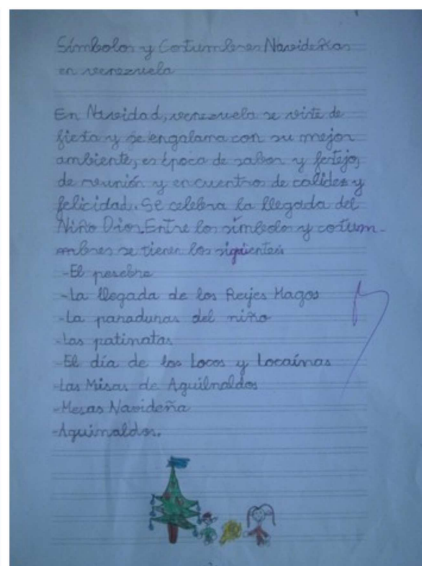 Símbolos y Costumbres Navideñas
en venezuela
En Navidad, venezuela se viste de
fiesta y se engalana con su mejor
ambiente, es época de sabor y festejo,
de reunión y encuentro de calidez y
felicidad. Se celebra la llegada del
Niño Dios. Entre los símbolo y costum-
mbres se tienen los siguientes
-El pesebre
-La llegada de los Reyes Magos
-La paraduras del niño
-Las patinatas
-El día de los Locos y Locaínas
-Las Misas de Aguilnaldos
-Mesas Navideña
-Aguinaldos.